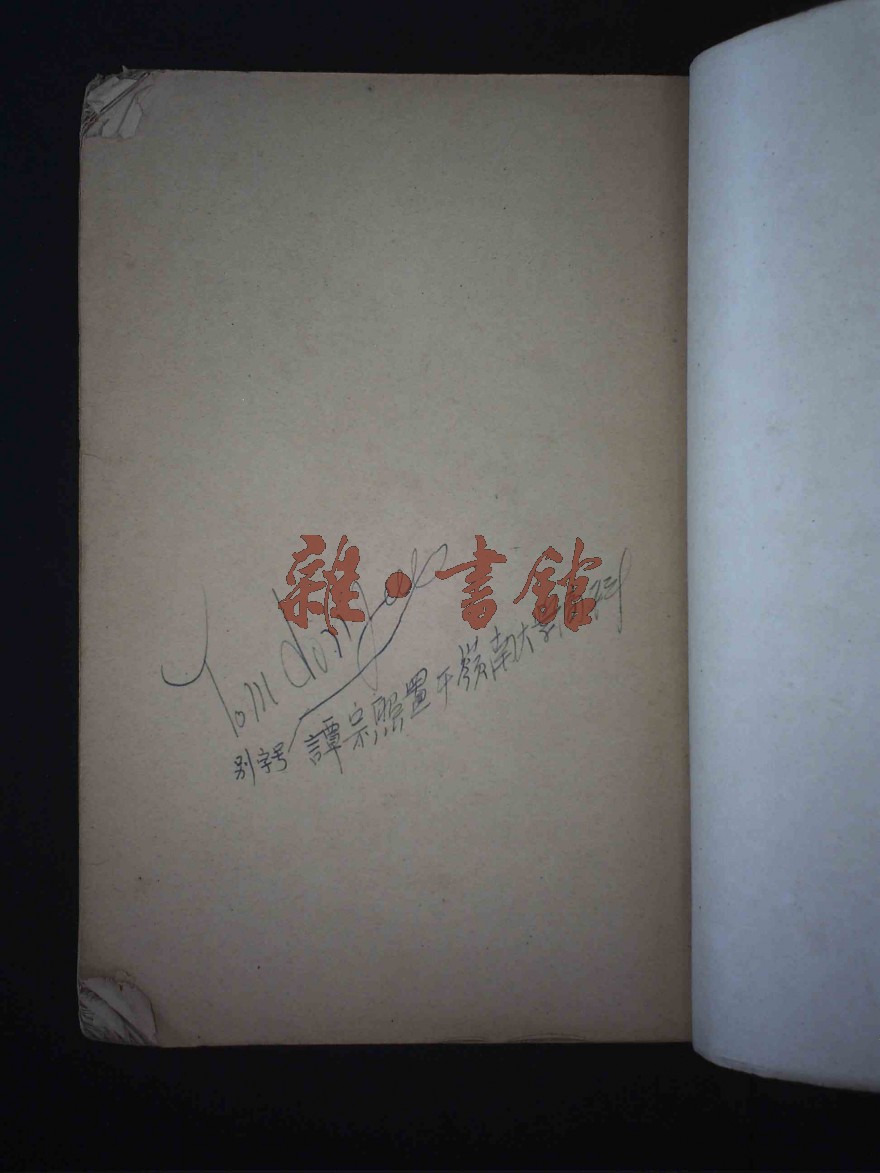 雜·書館
Tom
別字号 譚宗照置于嶺南大学